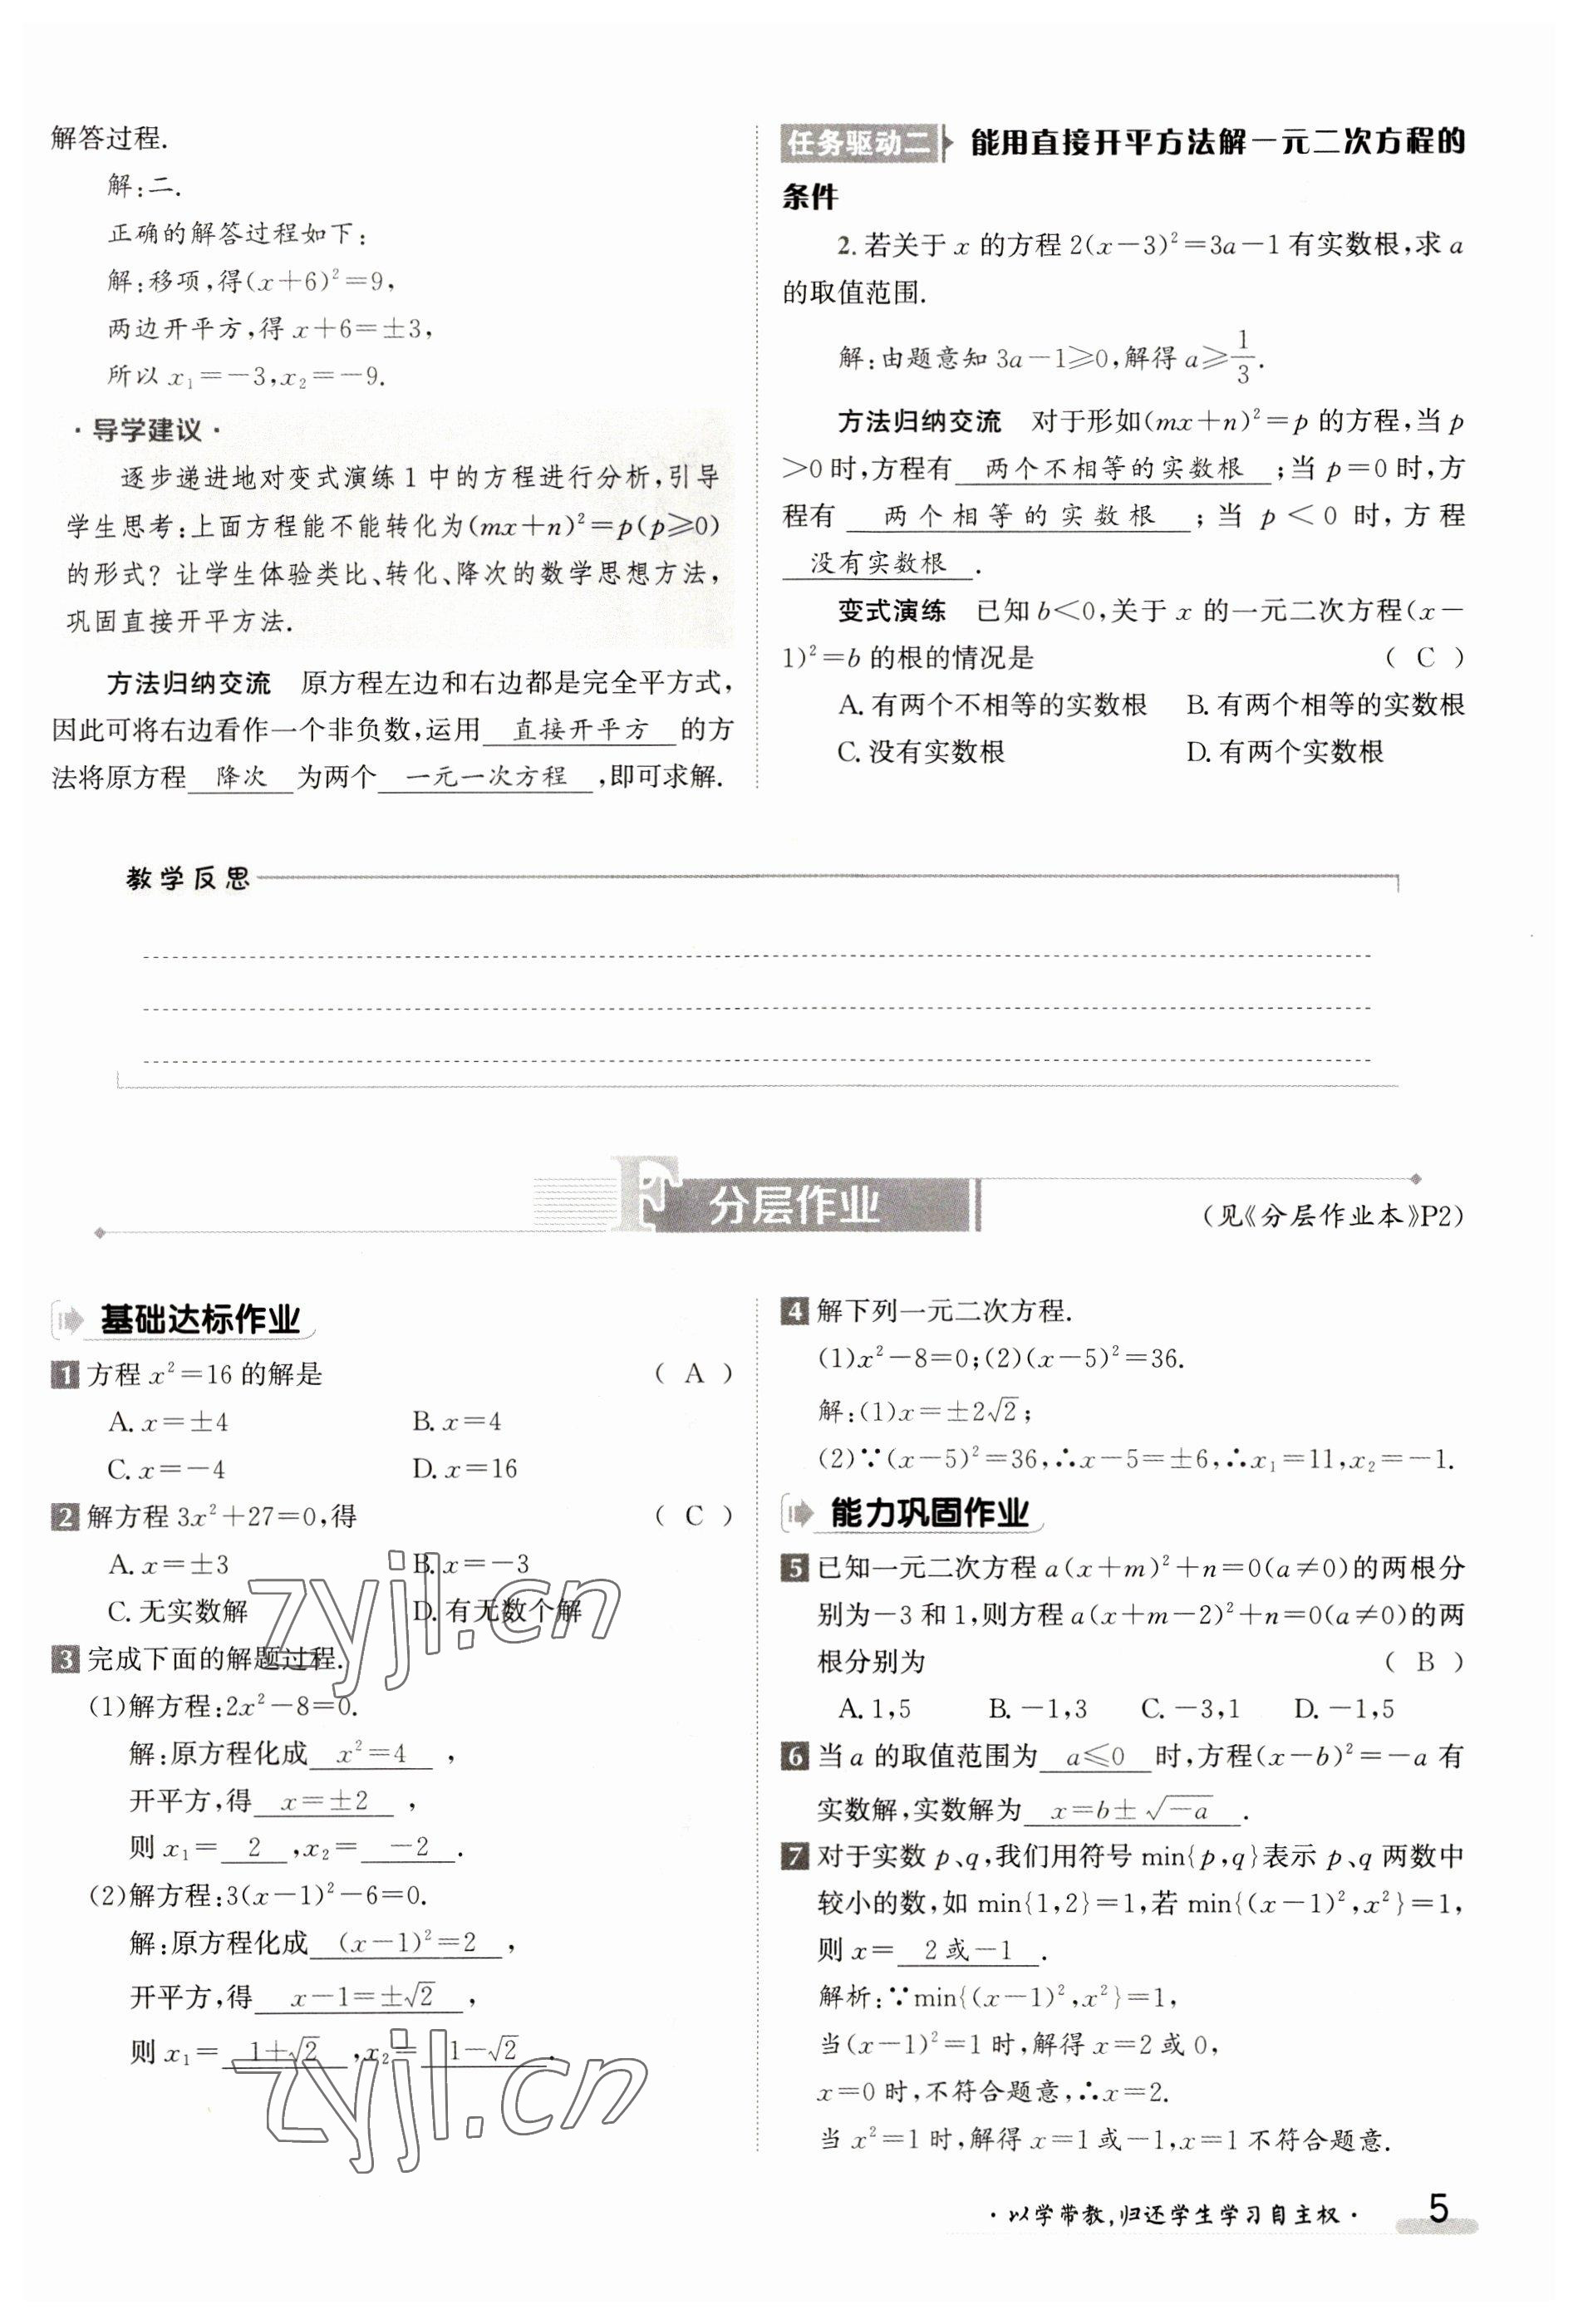 解答过程.
解:二.
正确的解答过程如下:
解:移项,得(x+6)²=9,
两边开平方,得 x+6=±3,
所以 x₁=-3,x₂=-9.
·导学建议·
逐步递进地对变式演练1中的方程进行分析,引导
学生思考:上面方程能不能转化为(mx+n)²=p(p≥0)
的形式?让学生体验类比、转化、降次的数学思想方法,
巩固直接开平方法.
方法归纳交流 原方程左边和右边都是完全平方式,
因此可将右边看作一个非负数,运用 直接开平方 的方
法将原方程 降次 为两个 一元一次方程 ,即可求解.
任务驱动二 能用直接开平方法解一元二次方程的
条件
2.若关于 x 的方程 2(x-3)²=3a-1 有实数根,求 a
的取值范围.
解:由题意知 3a-1≥0,解得 a≥1/3.
方法归纳交流 对于形如(mx+n)²=p 的方程,当 p
>0 时,方程有 两个不相等的实数根 ;当 p=0 时,方
程有 两个相等的实数根 ;当 p<0 时,方程
没有实数根 .
变式演练 已知 b<0,关于 x 的一元二次方程(x-
1)²=b 的根的情况是 ( C )
A.有两个不相等的实数根 B.有两个相等的实数根
C.没有实数根 D.有两个实数根
教学反思
F 分层作业
(见《分层作业本》P2)
基础达标作业
1 方程 x²=16 的解是 ( A )
A. x=±4 B. x=4
C. x=-4 D. x=16
2 解方程 3x²+27=0,得 ( C )
A. x=±3 B. x=-3
C.无实数解 D.有无数个解
3 完成下面的解题过程.
(1)解方程:2x²-8=0.
解:原方程化成 x²=4 ,
开平方,得 x=±2 ,
则 x₁= 2 ,x₂= -2 .
(2)解方程:3(x-1)²-6=0.
解:原方程化成 (x-1)²=2 ,
开平方,得 x-1=±√2 ,
则 x₁= 1+√2 ,x₂= 1-√2 .
4 解下列一元二次方程.
(1)x²-8=0;(2)(x-5)²=36.
解:(1)x=±2√2;
(2)∵(x-5)²=36,∴x-5=±6,∴x₁=11,x₂=-1.
能力巩固作业
5 已知一元二次方程 a(x+m)²+n=0(a≠0)的两根分
别为-3 和 1,则方程 a(x+m-2)²+n=0(a≠0)的两
根分别为 ( B )
A. 1,5 B. -1,3 C. -3,1 D. -1,5
6 当 a 的取值范围为 a≤0 时,方程(x-b)²=-a 有
实数解,实数解为 x=b±√-a .
7 对于实数 p、q,我们用符号 min{p,q}表示 p、q 两数中
较小的数,如 min{1,2}=1,若 min{(x-1)²,x²}=1,
则 x= 2或-1 .
解析:∵min{(x-1)²,x²}=1,
当(x-1)²=1 时,解得 x=2 或 0,
x=0 时,不符合题意,∴x=2.
当 x²=1 时,解得 x=1 或-1,x=1 不符合题意.
zyjl.cn
zyjl.cn
·以学带教,归还学生学习自主权· 5